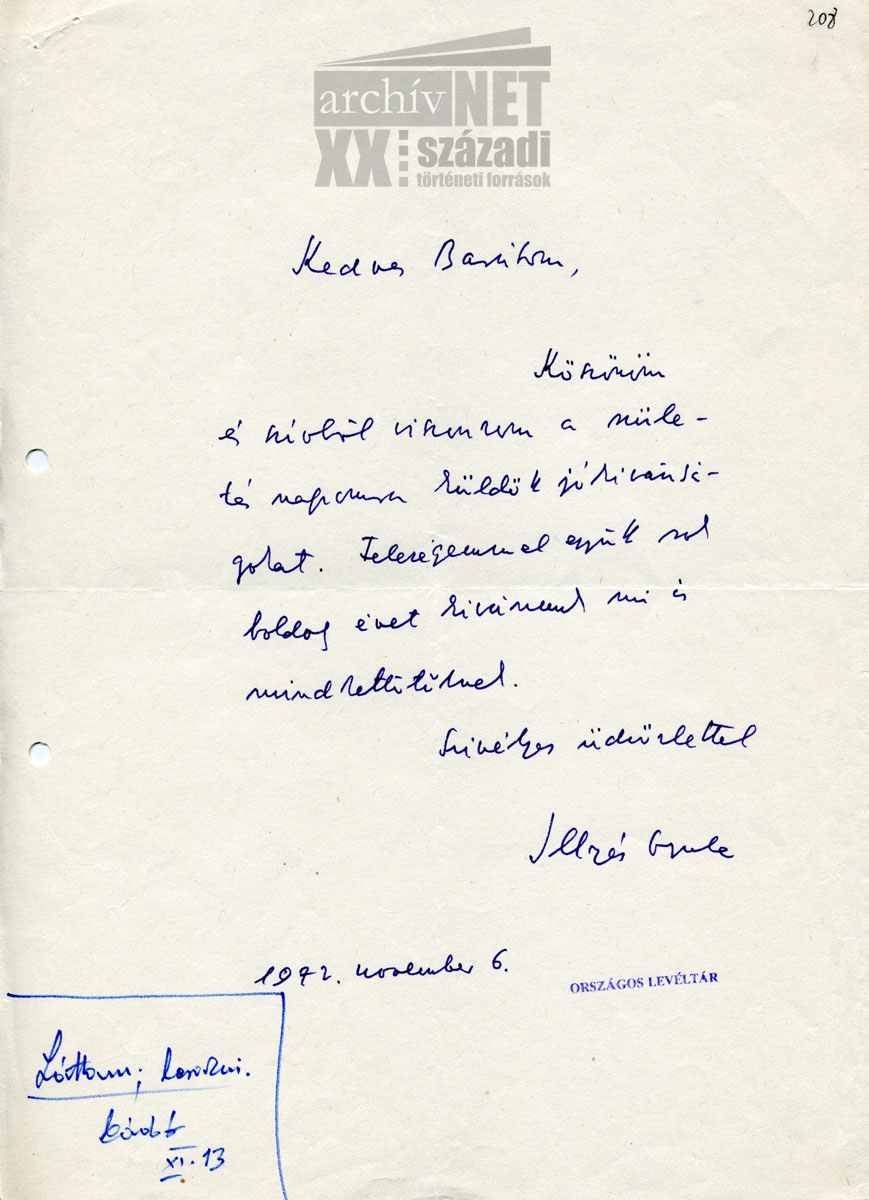 208
archív NET
XX. századi
történeti források
Kedves Barátom,
Köszönöm
és szívből viszonzom a szüle-
tés napomra küldött jókivánsá-
gokat. Feleségemmel együtt sok
boldog évet kivánunk mi is
mindkettőtöknek.
Szívélyes üdvözlettel
Illyés Gyula
1972. november 6.
ORSZÁGOS LEVÉLTÁR
Láttam;
XI. 13